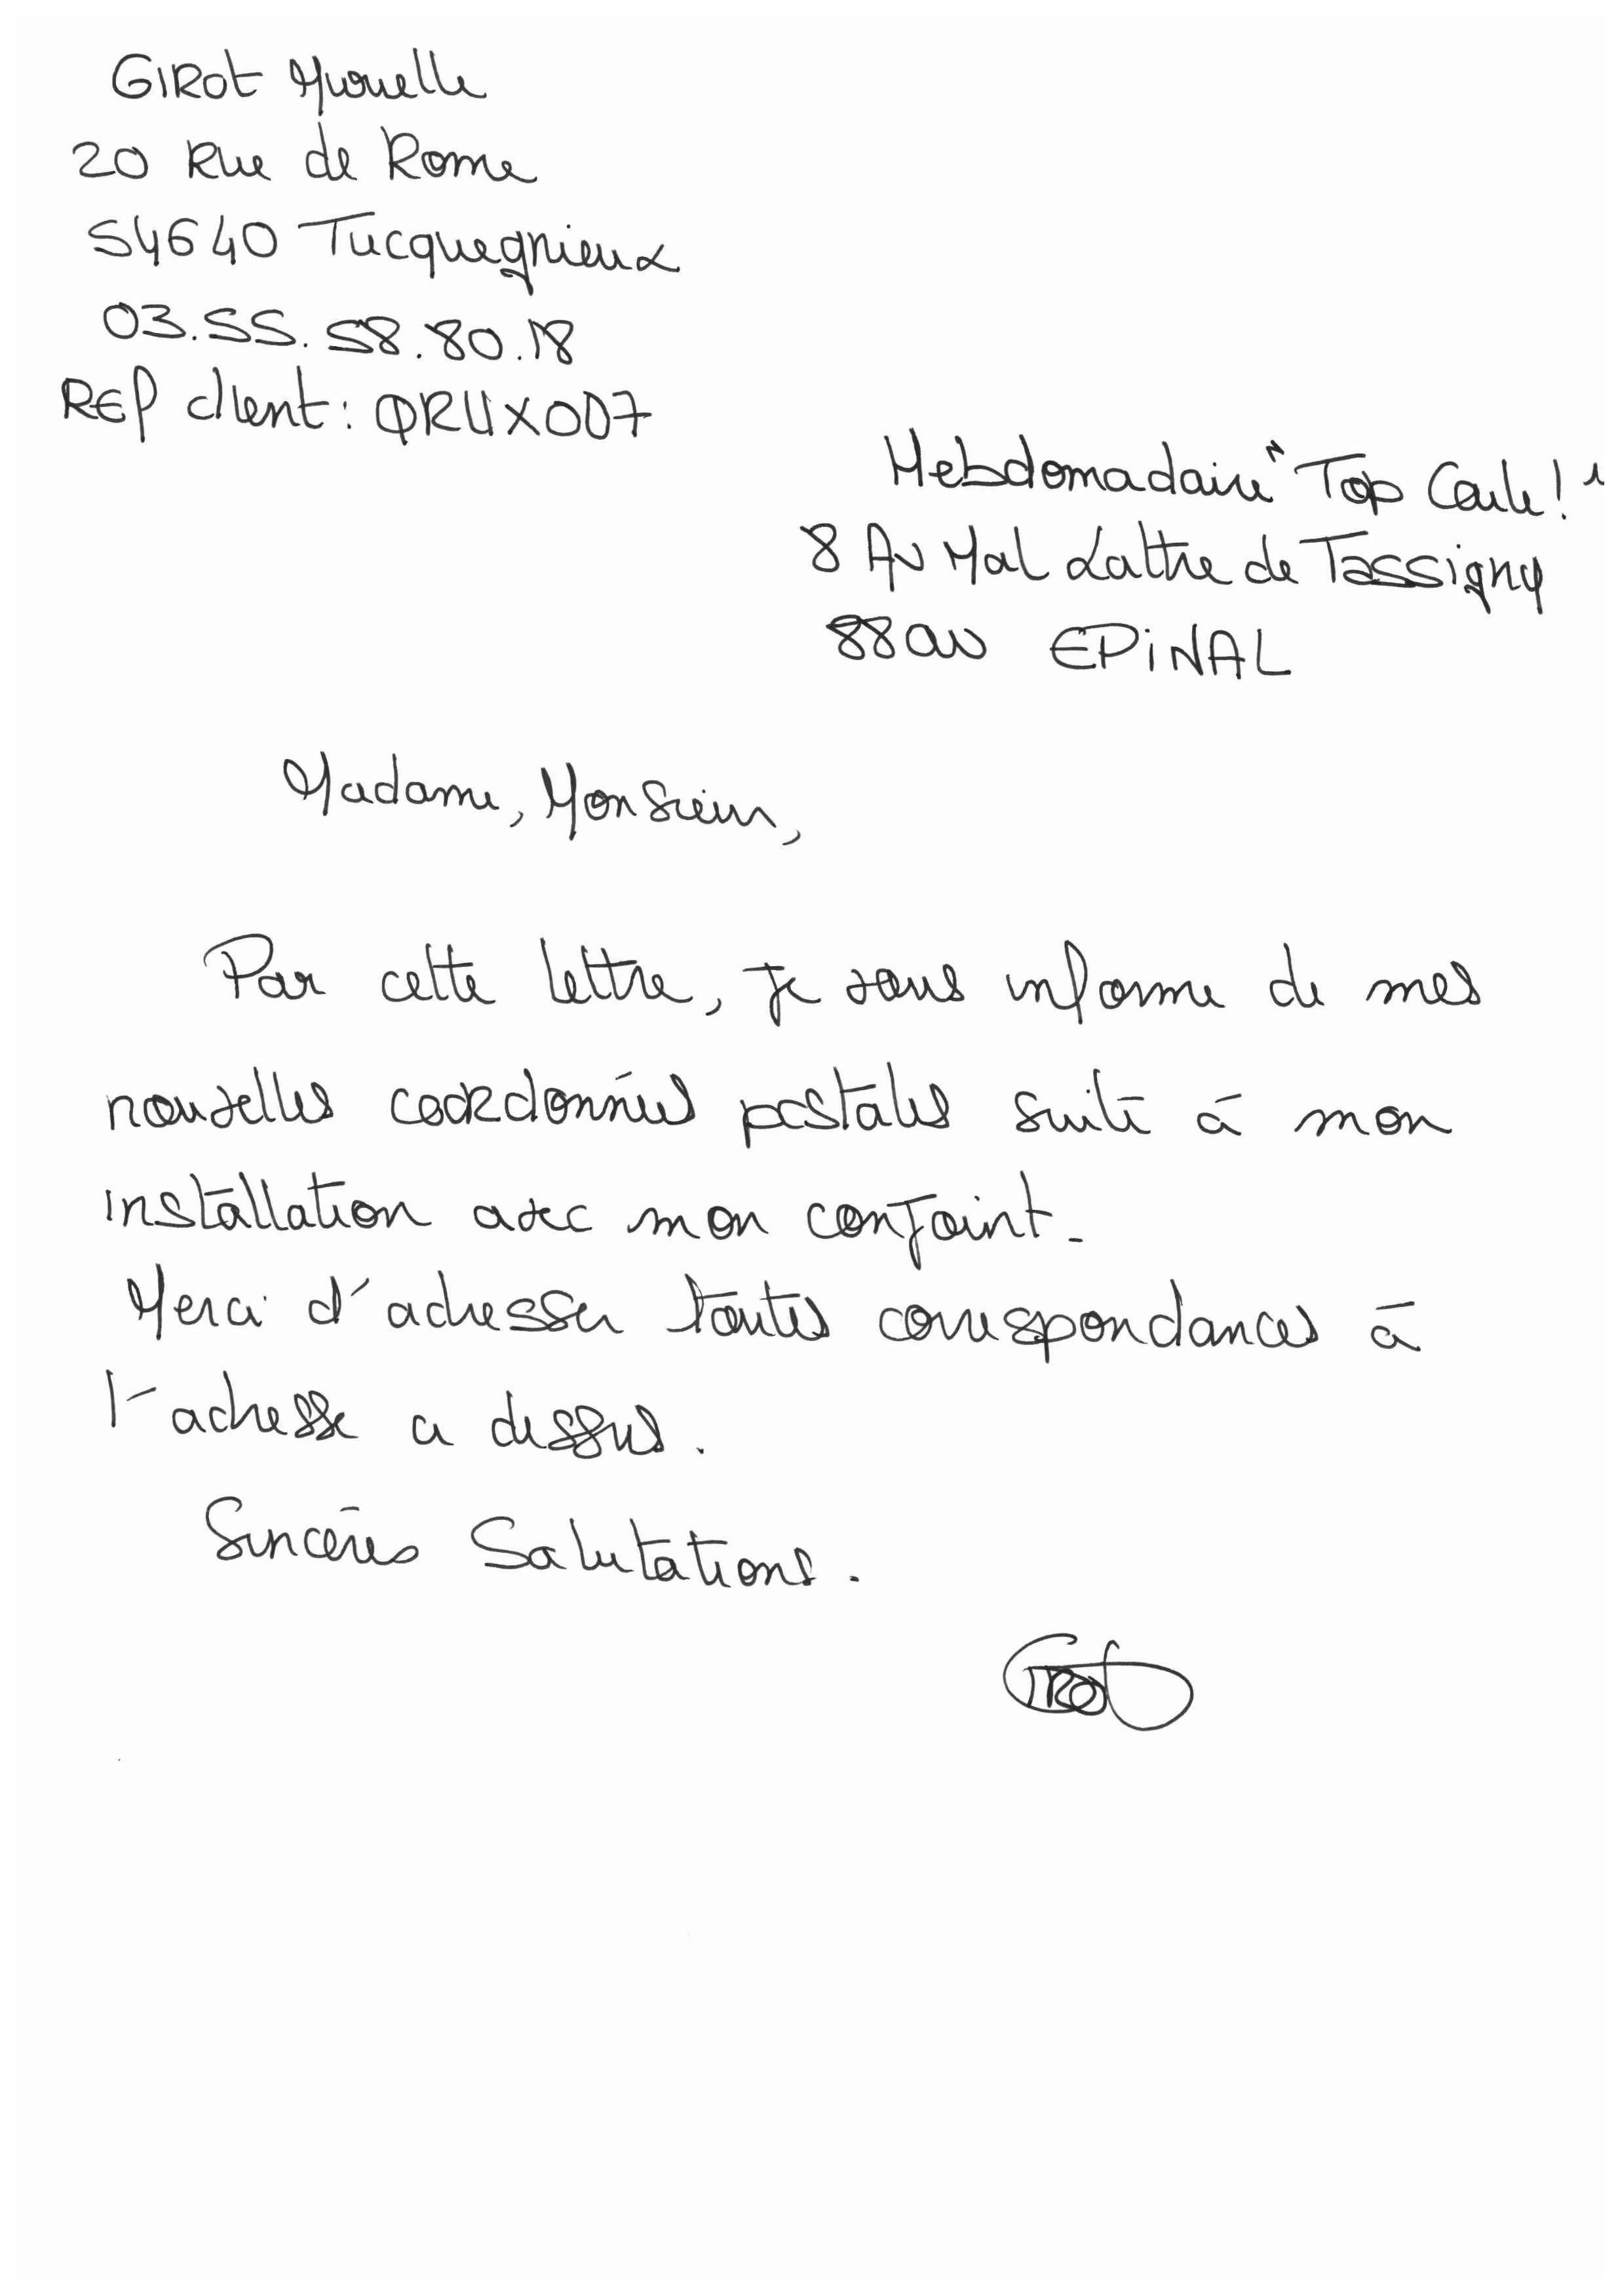 GIROt Murielle
20 Rue de Rome
54640 Tucquegnieux
03.55.58.80.18
REF client: QRUX007
Hebdomadaire "Top Cool!"
8 AV Mal Lattre de Tassigny
88000 EPINAL
Madame, Monsieur,
Par cette lettre, je vous informe de mes
nouvelles coordonnées postales suite à mon
installation avec mon conjoint.
Merci d'adresser toutes correspondances à
l'adresse ci dessus.
Sincères Salutations.
Girot